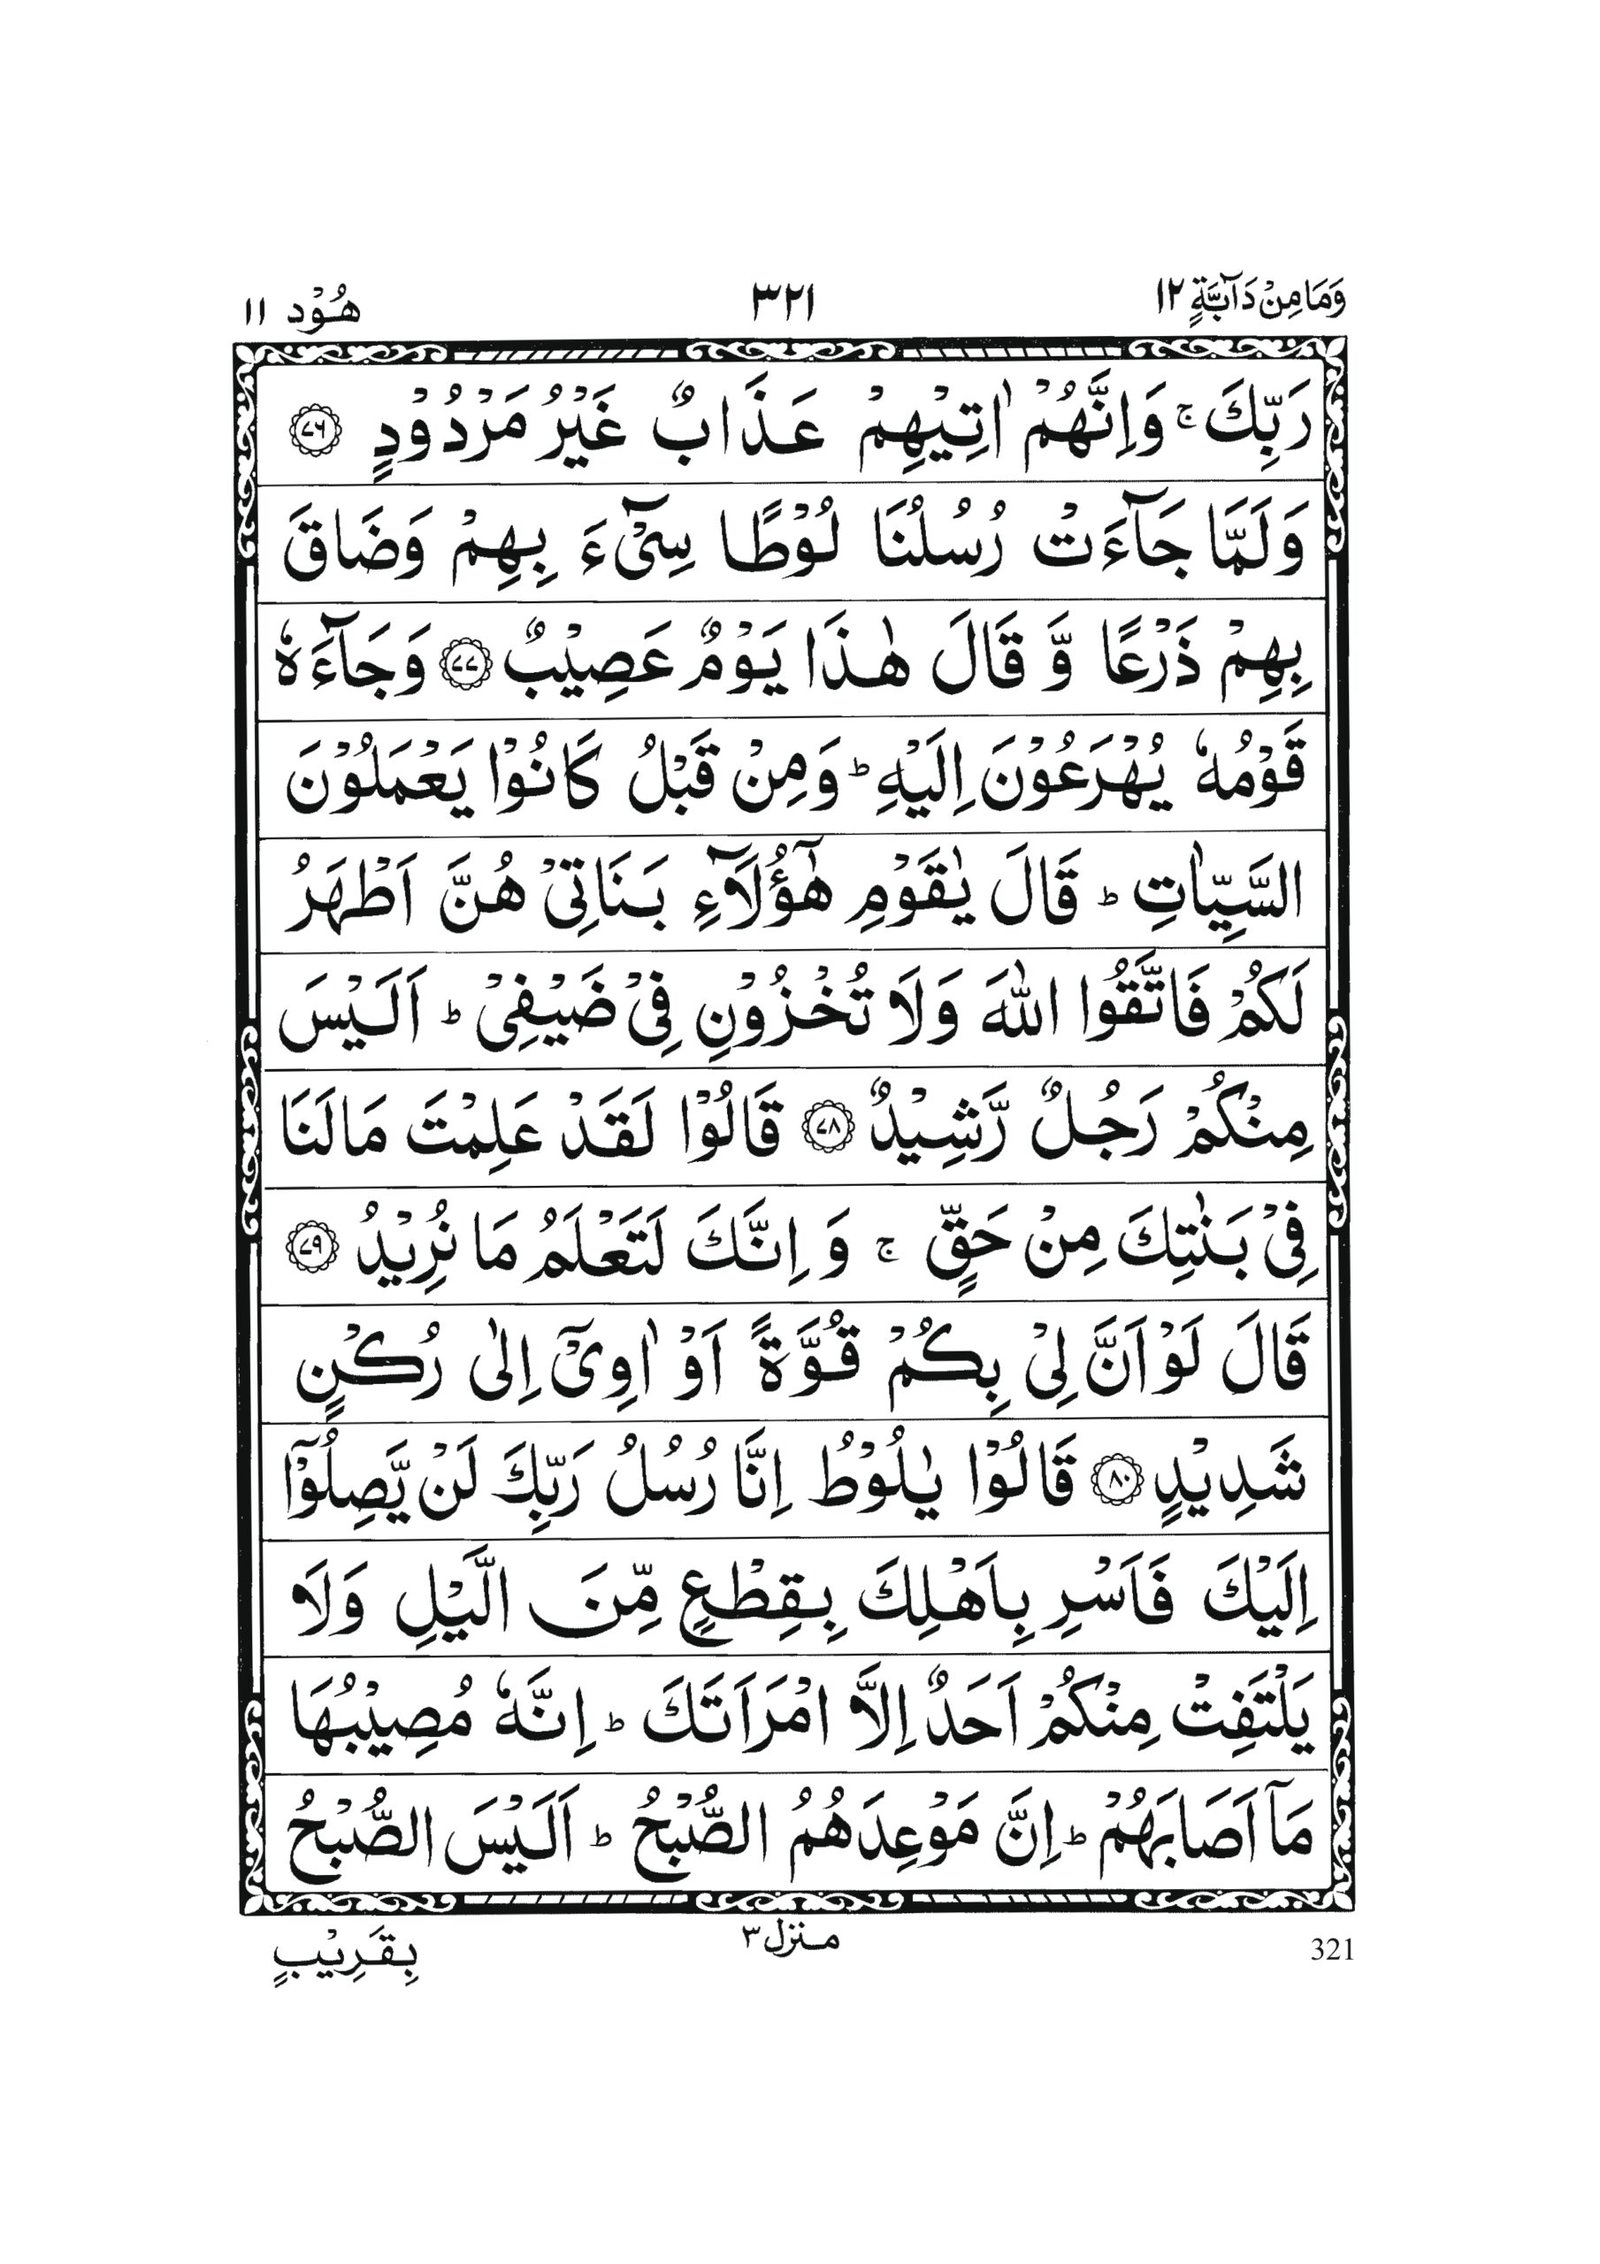 وَمَا مِنْ دَآبَّةٍ ١٢ ٣٢١ هُوْد ١١
رَبِّكَ ۚ وَاِنَّهُمْ اٰتِيْهِمْ عَذَابٌ غَيْرُ مَرْدُوْدٍ ﴿٧٦﴾
وَلَمَّا جَآءَتْ رُسُلُنَا لُوْطًا سِیْٓءَ بِهِمْ وَضَاقَ
بِهِمْ ذَرْعًا وَّ قَالَ هٰذَا يَوْمٌ عَصِيْبٌ ﴿٧٧﴾ وَجَآءَهٗ
قَوْمُهٗ يُهْرَعُوْنَ اِلَيْهِ ؕ وَمِنْ قَبْلُ كَانُوْا يَعْمَلُوْنَ
السَّيِّاٰتِ ؕ قَالَ يٰقَوْمِ هٰٓؤُلَآءِ بَنَاتِیْ هُنَّ اَطْهَرُ
لَكُمْ فَاتَّقُوا اللّٰهَ وَلَا تُخْزُوْنِ فِیْ ضَيْفِیْ ؕ اَلَيْسَ
مِنْكُمْ رَجُلٌ رَّشِيْدٌ ﴿٧٨﴾ قَالُوْا لَقَدْ عَلِمْتَ مَا لَنَا
فِیْ بَنٰتِكَ مِنْ حَقٍّ ۚ وَ اِنَّكَ لَتَعْلَمُ مَا نُرِيْدُ ﴿٧٩﴾
قَالَ لَوْ اَنَّ لِیْ بِكُمْ قُوَّةً اَوْ اٰوِیْۤ اِلٰی رُكْنٍ
شَدِيْدٍ ﴿٨٠﴾ قَالُوْا يٰلُوْطُ اِنَّا رُسُلُ رَبِّكَ لَنْ يَّصِلُوْۤا
اِلَيْكَ فَاَسْرِ بِاَهْلِكَ بِقِطْعٍ مِّنَ الَّيْلِ وَلَا
يَلْتَفِتْ مِنْكُمْ اَحَدٌ اِلَّا امْرَاَتَكَ ؕ اِنَّهٗ مُصِيْبُهَا
مَآ اَصَابَهُمْ ؕ اِنَّ مَوْعِدَهُمُ الصُّبْحُ ؕ اَلَيْسَ الصُّبْحُ
321 منزل ٣ بِقَرِيْبٍ